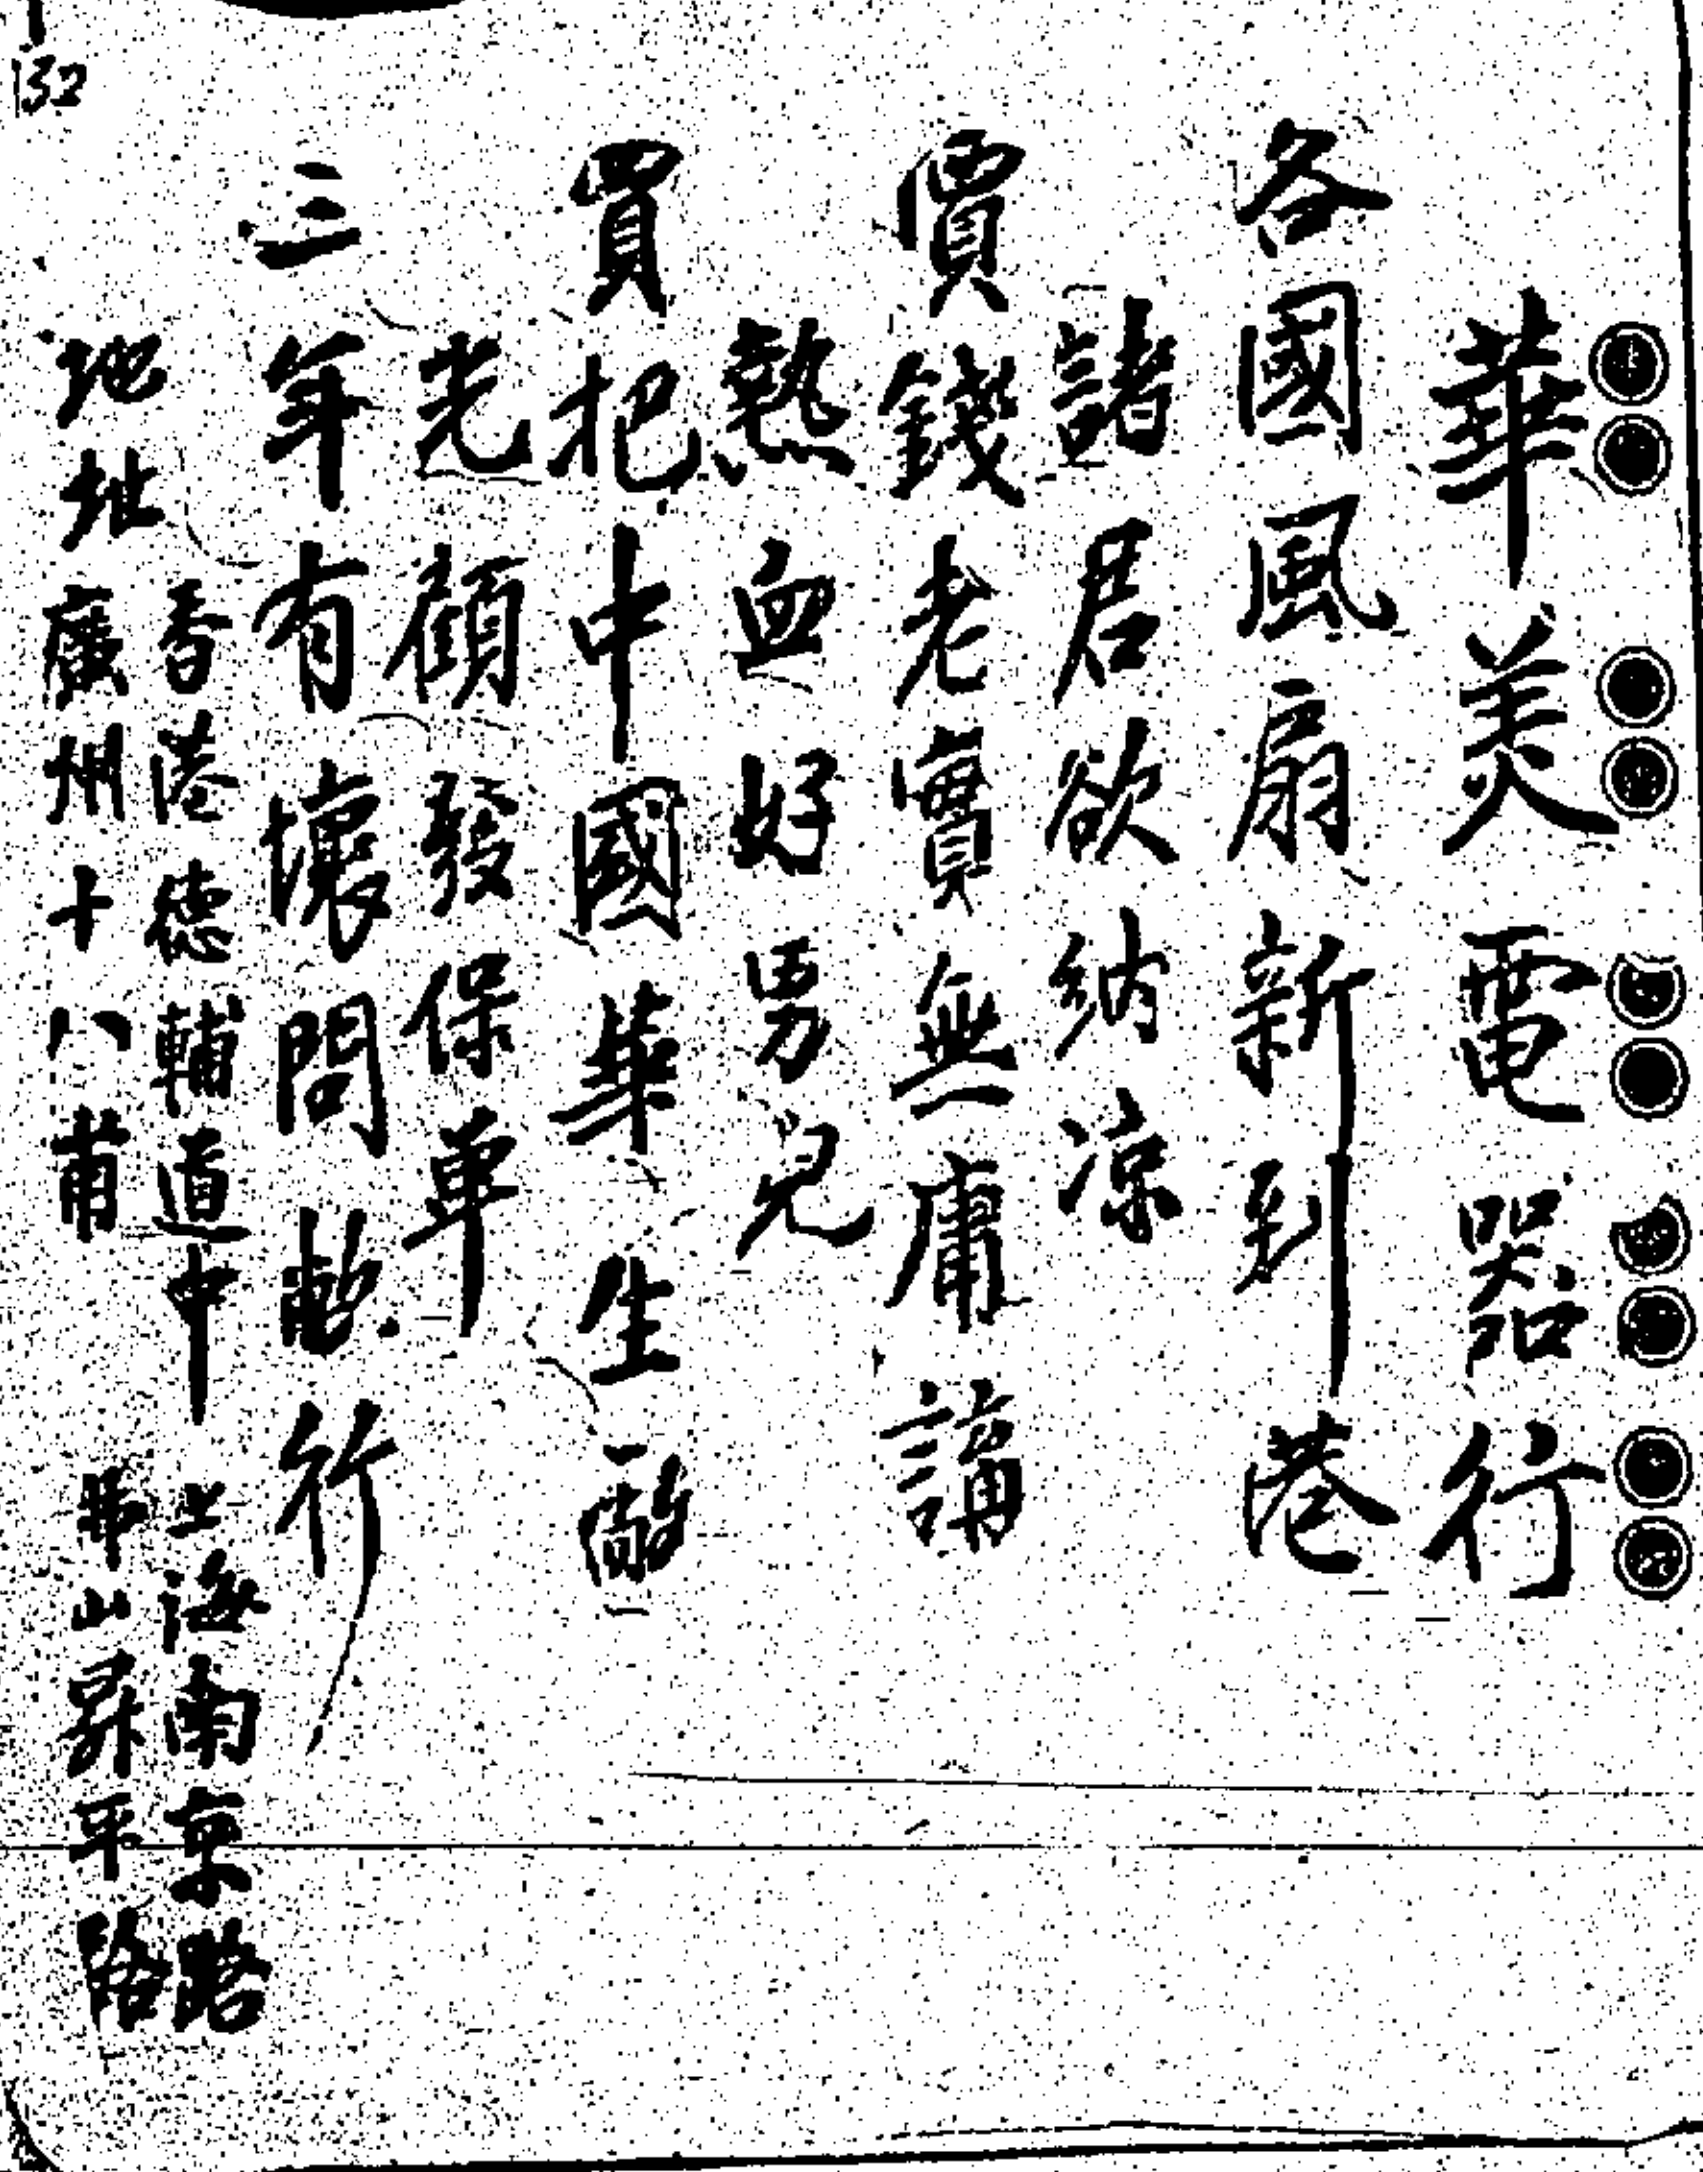 132
華美電器行
各國風扇新到港
諸君欲納凉
價錢老實無庸講
熱血好男兒
買把中國華生
光顧發保單
三年有壞問敝行
地址
香港德輔道中 上海南京路
廣州十八甫 佛山昇平路